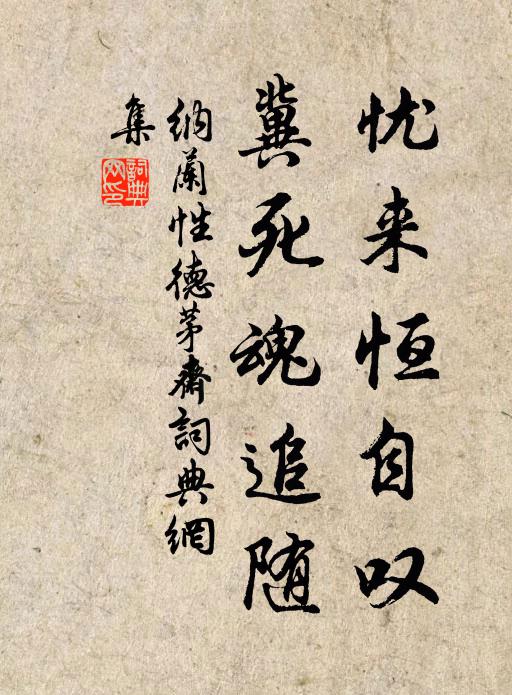 忧来恒自叹
冀死魂追随
纳蘭性德茅齋詞典網
集
詞典
网印